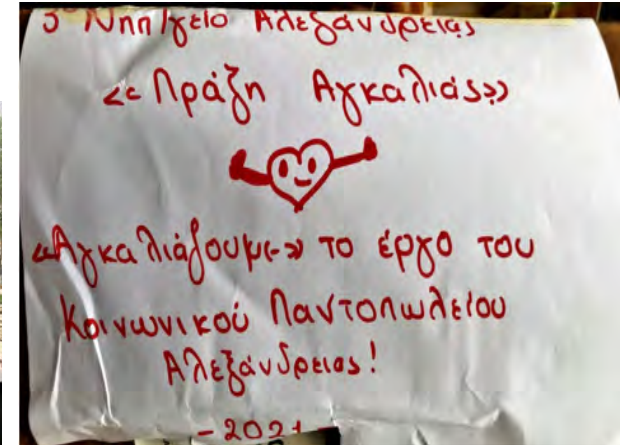 3ο Νηπ/γείο Αλεξάνδρειας
<<Πράξη Αγκαλιάς>>
«Αγκαλιάζουμε» το έργο του
Κοινωνικού Παντοπωλείου
Αλεξάνδρειας!
-2021